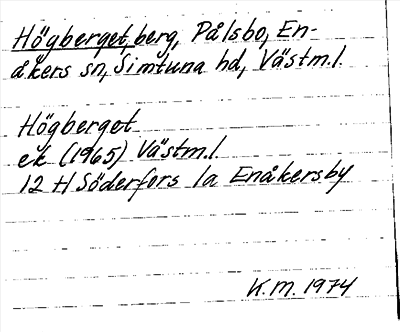 Högberget, berg, Pålsbo, En-
åkers sn, Simtuna hd, Västm.l.
Högberget
ek (1965) Västm.l.
12 H Söderfors 1a Enåkersby
K.M. 1974